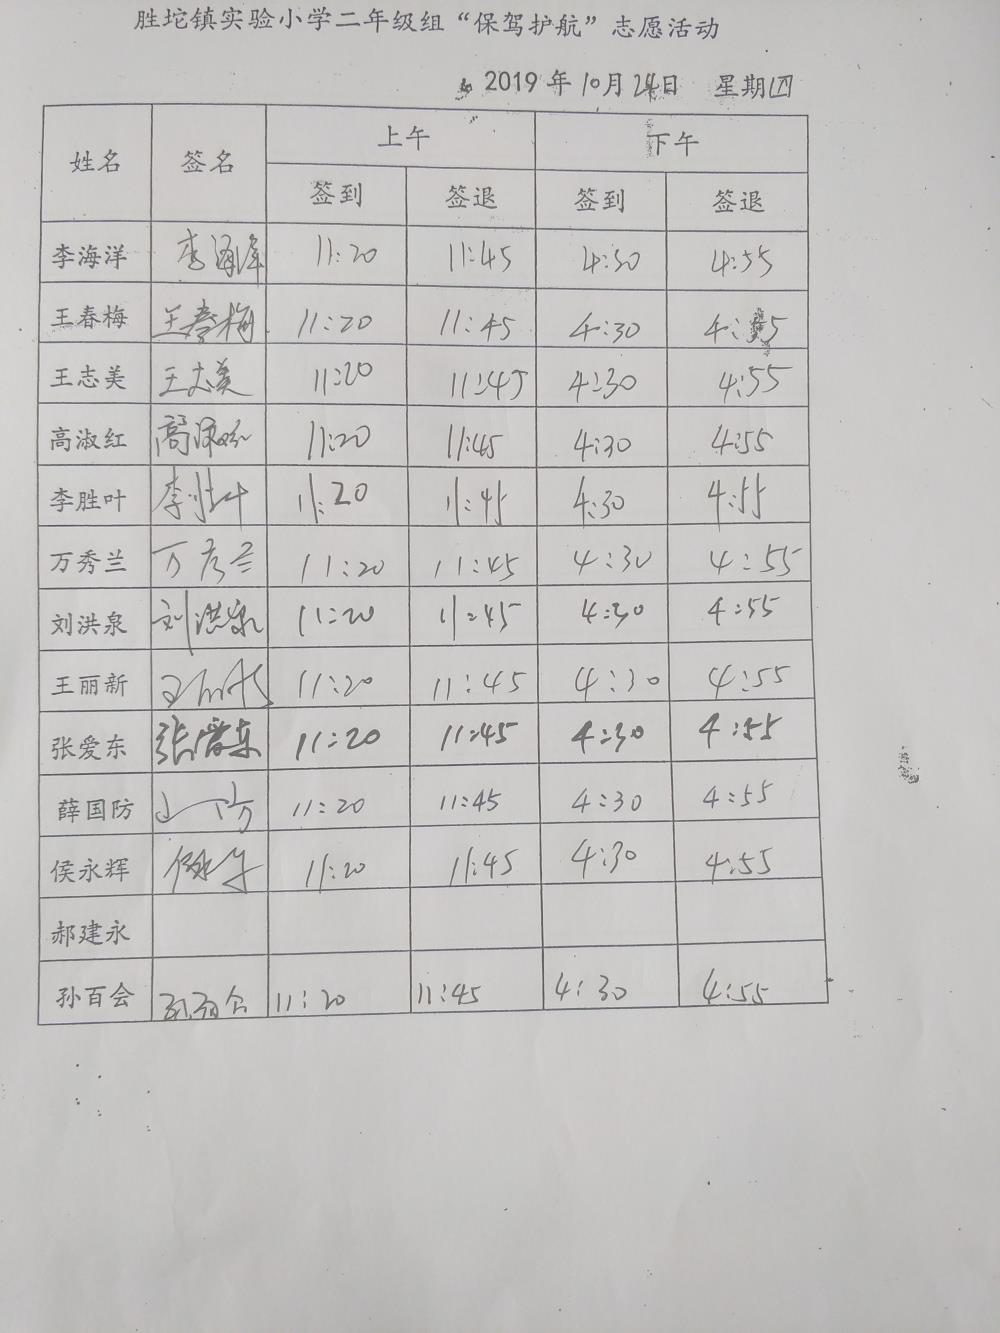 胜坨镇实验小学二年级组“保驾护航”志愿活动
2019年10月24日 星期四
姓名 签名 上午 下午
签到 签退 签到 签退
李海洋 李海洋 11:20 11:45 4:30 4:55
王春梅 王春梅 11:20 11:45 4:30 4:55
王志美 王志美 11:20 11:45 4:30 4:55
高淑红 高淑红 11:20 11:45 4:30 4:55
李胜叶 李胜叶 11:20 11:45 4:30 4:55
万秀兰 万秀兰 11:20 11:45 4:30 4:55
刘洪泉 刘洪泉 11:20 11:45 4:30 4:55
王丽新 王丽新 11:20 11:45 4:30 4:55
张爱东 张爱东 11:20 11:45 4:30 4:55
薛国防 11:20 11:45 4:30 4:55
侯永辉 侯永辉 11:20 11:45 4:30 4:55
郝建永
孙百会 孙百会 11:20 11:45 4:30 4:55